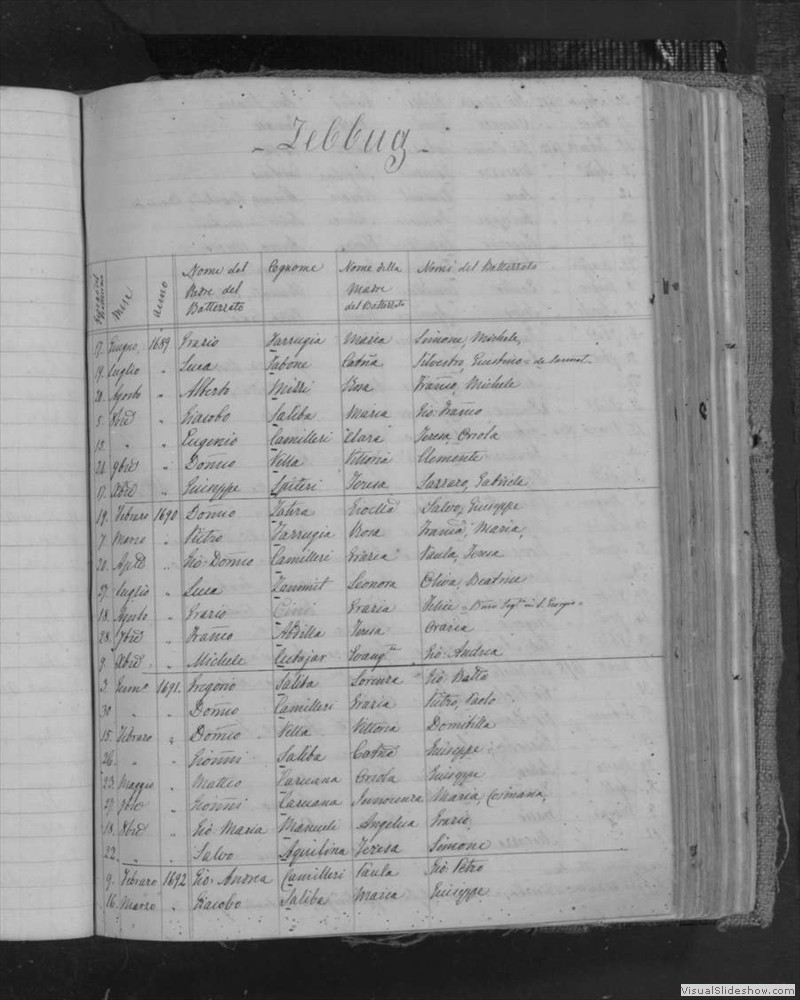 - Zebbug -
Giorno del Battesimo Mese Anno Nome del Padre del Battezzato Cognome Nome della Madre del Battezzato Nomi del Battezzato
7. Giugno, 1689 Grazio Farrugia Maria Simone, Michele,
19. Luglio " Luca Tabone Catna Silvestro, Giustino =
20. Agosto " Alberto Mizzi Rosa Franco, Michele
5. 8bre " Giacobo Saliba Maria Gio: Franco
15. " " Eugenio Camilleri Clara Teresa, Orsola
24. 9bre " Domco Vella Vittoria Clemente
17. Xbre " Giuseppe Spiteri Teresa Gabriele
19. Febraro 1690 Domco Salvo, Giuseppe
7. Marzo " Pietro Farrugia Rosa Franca, Maria,
20. Aple " Gio: Domco Camilleri Grazia Paula, Teresa
27. Luglio " Luca Zammit Leonora Oliva, Beatrice
18. Agosto " Grazio Cini Grazia Felice = in S. Giorgio =
28. 7bre " Franco Abdilla Teresa Grazia
9. Xbre " Michele Cutajar Evangta Gio: Andrea
3. Genno 1691. Gregorio Saliba Lorenza Gio: Batta
30 " " Domco Camilleri Grazia Pietro, Paolo
15. Febraro " Domco Vella Vittoria Domitilla
26. " " Gionni Saliba Catna Giuseppe
23. Maggio " Matteo Caruana Orsola Giuseppe
27. 9bre " Gionni Caruana Innocenza Maria, Osmana,
18. Xbre " Gio: Maria Manueli Angelica Grazio,
22. " " Salvo Aquilina Teresa Simone
9. Febraro 1692 Gio: Andrea Camilleri Paula Gio: Pietro
16. Marzo " Giacobo Saliba Maria Giuseppe
VisualSlideshow.com